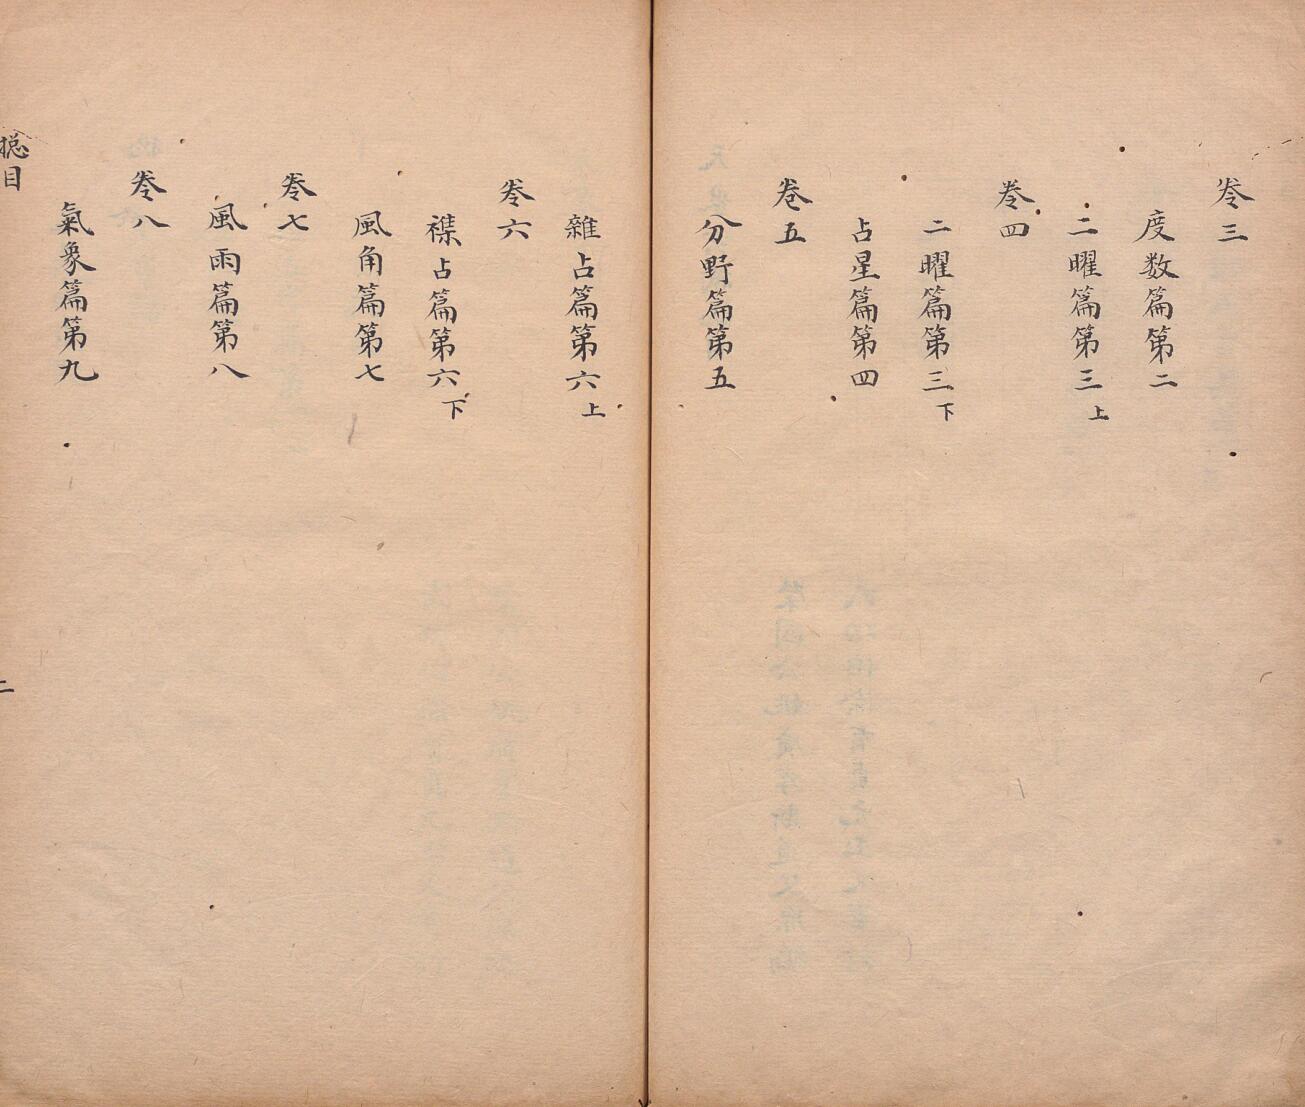 卷三
度数篇第二
二曜篇第三上
卷四
二曜篇第三下
占星篇第四
卷五
分野篇第五
雜占篇第六上
卷六
襍占篇第六下
風角篇第七
卷七
風雨篇第八
卷八
氣象篇第九
揔目
二